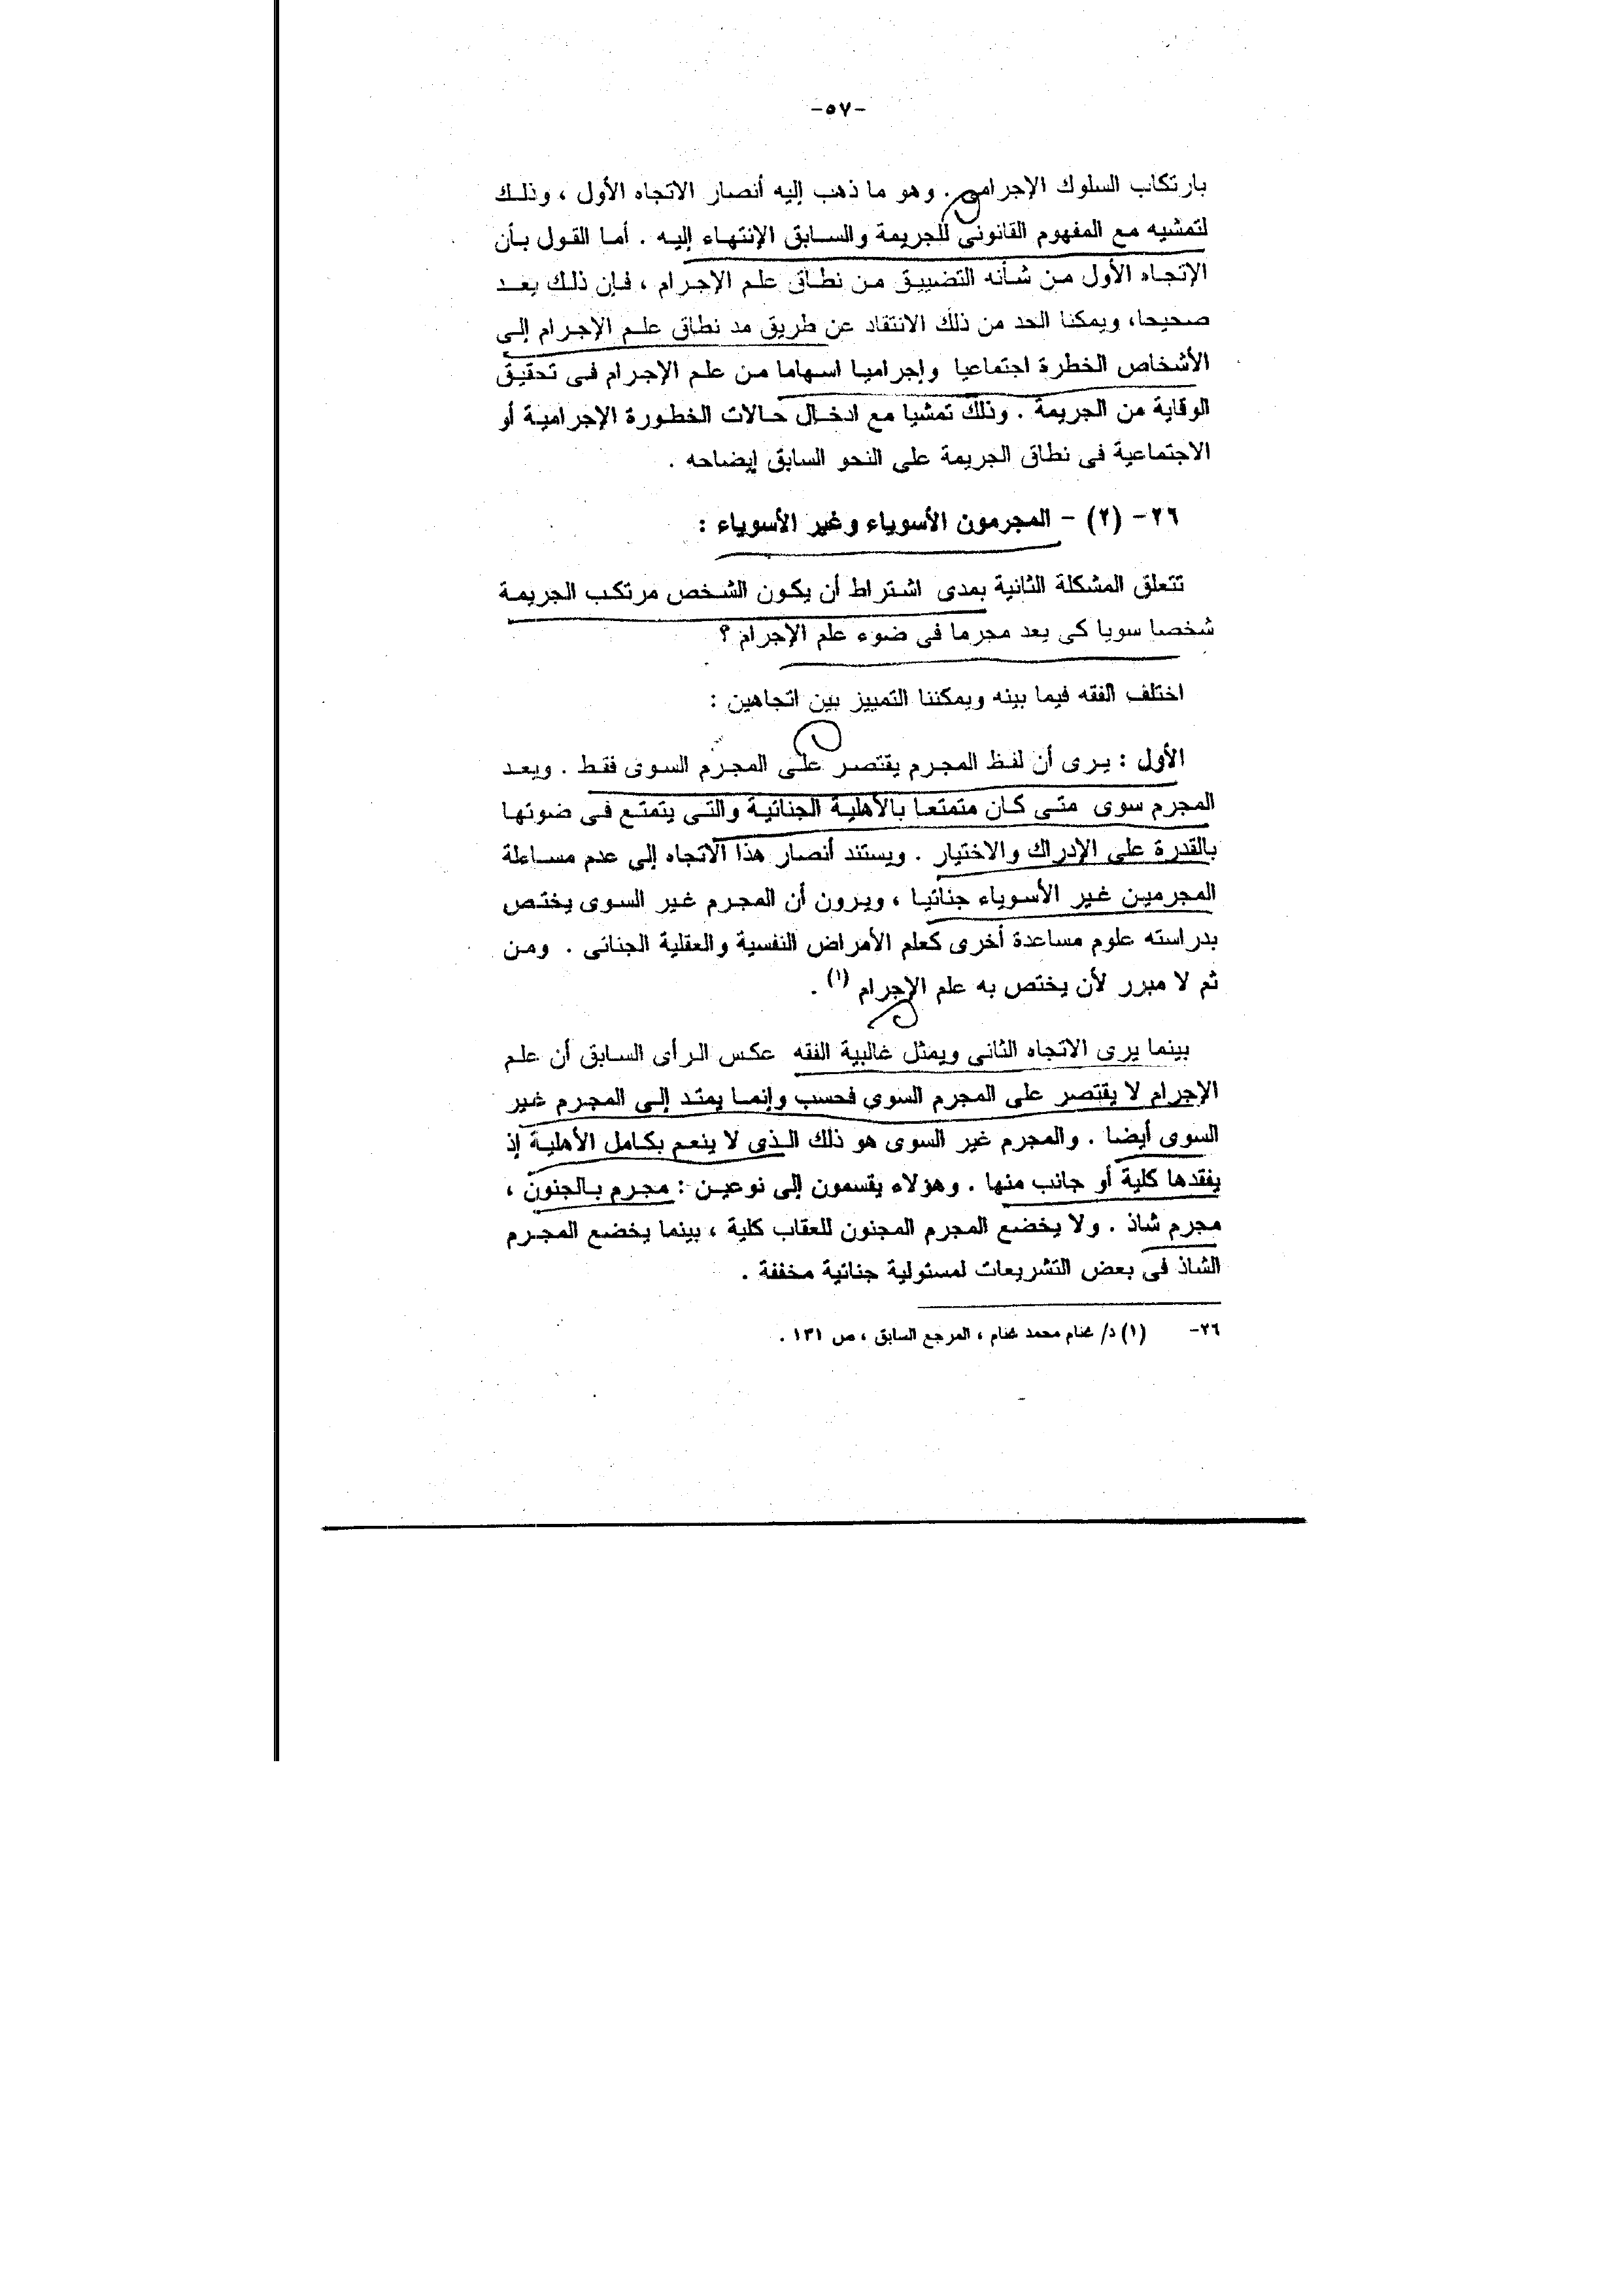 -٥٧-
بارتكاب السلوك الإجرامى . وهو ما ذهب إليه أنصار الاتجاه الأول ، وذلك
لتمشيه مع المفهوم القانونى للجريمة والسابق الإنتهاء إليه . أما القول بأن
الإتجاه الأول من شأنه التضييق من نطاق علم الإجرام ، فإن ذلك يعد
صحيحا، ويمكنا الحد من ذلك الانتقاد عن طريق مد نطاق علم الإجرام إلى
الأشخاص الخطرة اجتماعيا وإجراميا اسهاما من علم الإجرام فى تحقيق
الوقاية من الجريمة . وذلك تمشيا مع ادخال حالات الخطورة الإجرامية أو
الاجتماعية فى نطاق الجريمة على النحو السابق إيضاحه .
٢٦- (٢) - المجرمون الأسوياء وغير الأسوياء :
تتعلق المشكلة الثانية بمدى اشتراط أن يكون الشخص مرتكب الجريمة
شخصا سويا كى يعد مجرما فى ضوء علم الإجرام ؟
اختلف الفقه فيما بينه ويمكننا التمييز بين اتجاهين :
الأول : يرى أن لفظ المجرم يقتصر على المجرم السوى فقط . ويعد
المجرم سوى متى كان متمتعا بالأهلية الجنائية والتى يتمتع فى ضوئها
بالقدرة على الإدراك والاختيار . ويستند أنصار هذا الاتجاه إلى عدم مساءلة
المجرمين غير الأسوياء جنائيا ، ويرون أن المجرم غير السوى يختص
بدراسته علوم مساعدة أخرى كعلم الأمراض النفسية والعقلية الجنائى . ومن
ثم لا مبرر لأن يختص به علم الإجرام (١) .
بينما يرى الاتجاه الثانى ويمثل غالبية الفقه عكس الرأى السابق أن علم
الإجرام لا يقتصر على المجرم السوى فحسب وإنما يمتد إلى المجرم غير
السوى أيضا . والمجرم غير السوى هو ذلك الذى لا ينعم بكامل الأهلية إذ
يفقدها كلية أو جانب منها . وهؤلاء يقسمون إلى نوعين : مجرم بالجنون ،
مجرم شاذ . ولا يخضع المجرم المجنون للعقاب كلية ، بينما يخضع المجرم
الشاذ فى بعض التشريعات لمسئولية جنائية مخففة .
٢٦- (١) د/ غنام محمد غنام ، المرجع السابق ، ص ١٣١ .